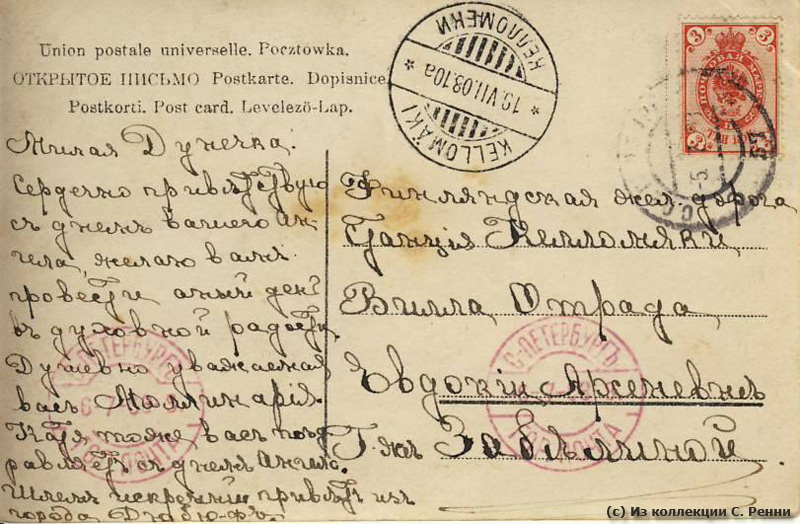 Union postale universelle. Pocztówka.
ОТКРЫТОЕ ПИСЬМО Postkarte. Dopisnice.
Postkorti. Post card. Levelező-Lap.
KELLOMÄKI
19.VII.08.10a
КЕЛЛОМЕКИ
3 3
ПОЧТОВАЯ МАРКА
Милая Дунечка.
Сердечно приветствую
съ днемъ вашего Ан-
гела, желаю вамъ
провести оный день
въ духовной радости,
Душевно уважаемая
васъ Моллинарія.
Катя тоже васъ поз-
равляетъ съ днемъ Ангела.
Шлемъ искренній привѣтъ изъ
города
Финляндская жел. дорога
Станція Келломяки
Вилла Отрада
Евдокіи Арсеневнѣ
Г-жѣ Забѣлиной
С-ПЕТЕРБУРГЪ
ПОЧТА
С-ПЕТЕРБУРГЪ
ПОЧТА
(c) Из коллекции С. Ренни